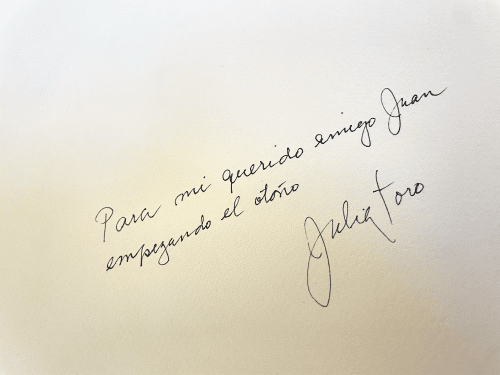 Para mi querido amigo Juan
empezando el otoño
Julia Toro